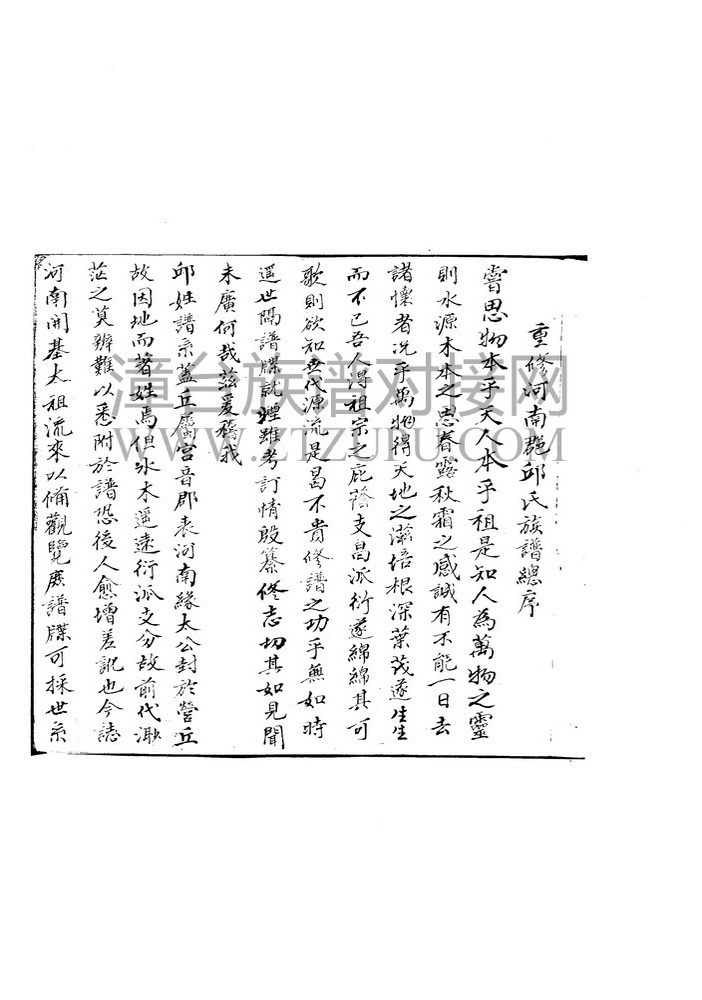 重修河南郡邱氏族譜總序
嘗思物本乎天人本乎祖是知人為萬物之靈
則水源木本之思春露秋霜之感誠有不能一日去
諸懷者況乎萬物得天地之滋培根深葉茂遂生生
而不已吾人得祖宗之庇蔭支昌派衍遂綿綿其可
歌則欲知世代源流是曷不貴修譜之功乎無如時
遥世隔譜牒就湮雖考訂情殷纂修志切其如見聞
未廣何哉茲爰稽我
邱姓譜系蓋丘屬宮音郡表河南緣太公封於營丘
故因地而著姓焉但水木遥遠衍派支分故前代渺
茫之莫辨難以悉附於譜恐後人愈增差訛也今誌
河南開基太祖流來以備觀覽庶譜牒可採世系
漳台族谱对接网
WWW.ZTZUPU.COM